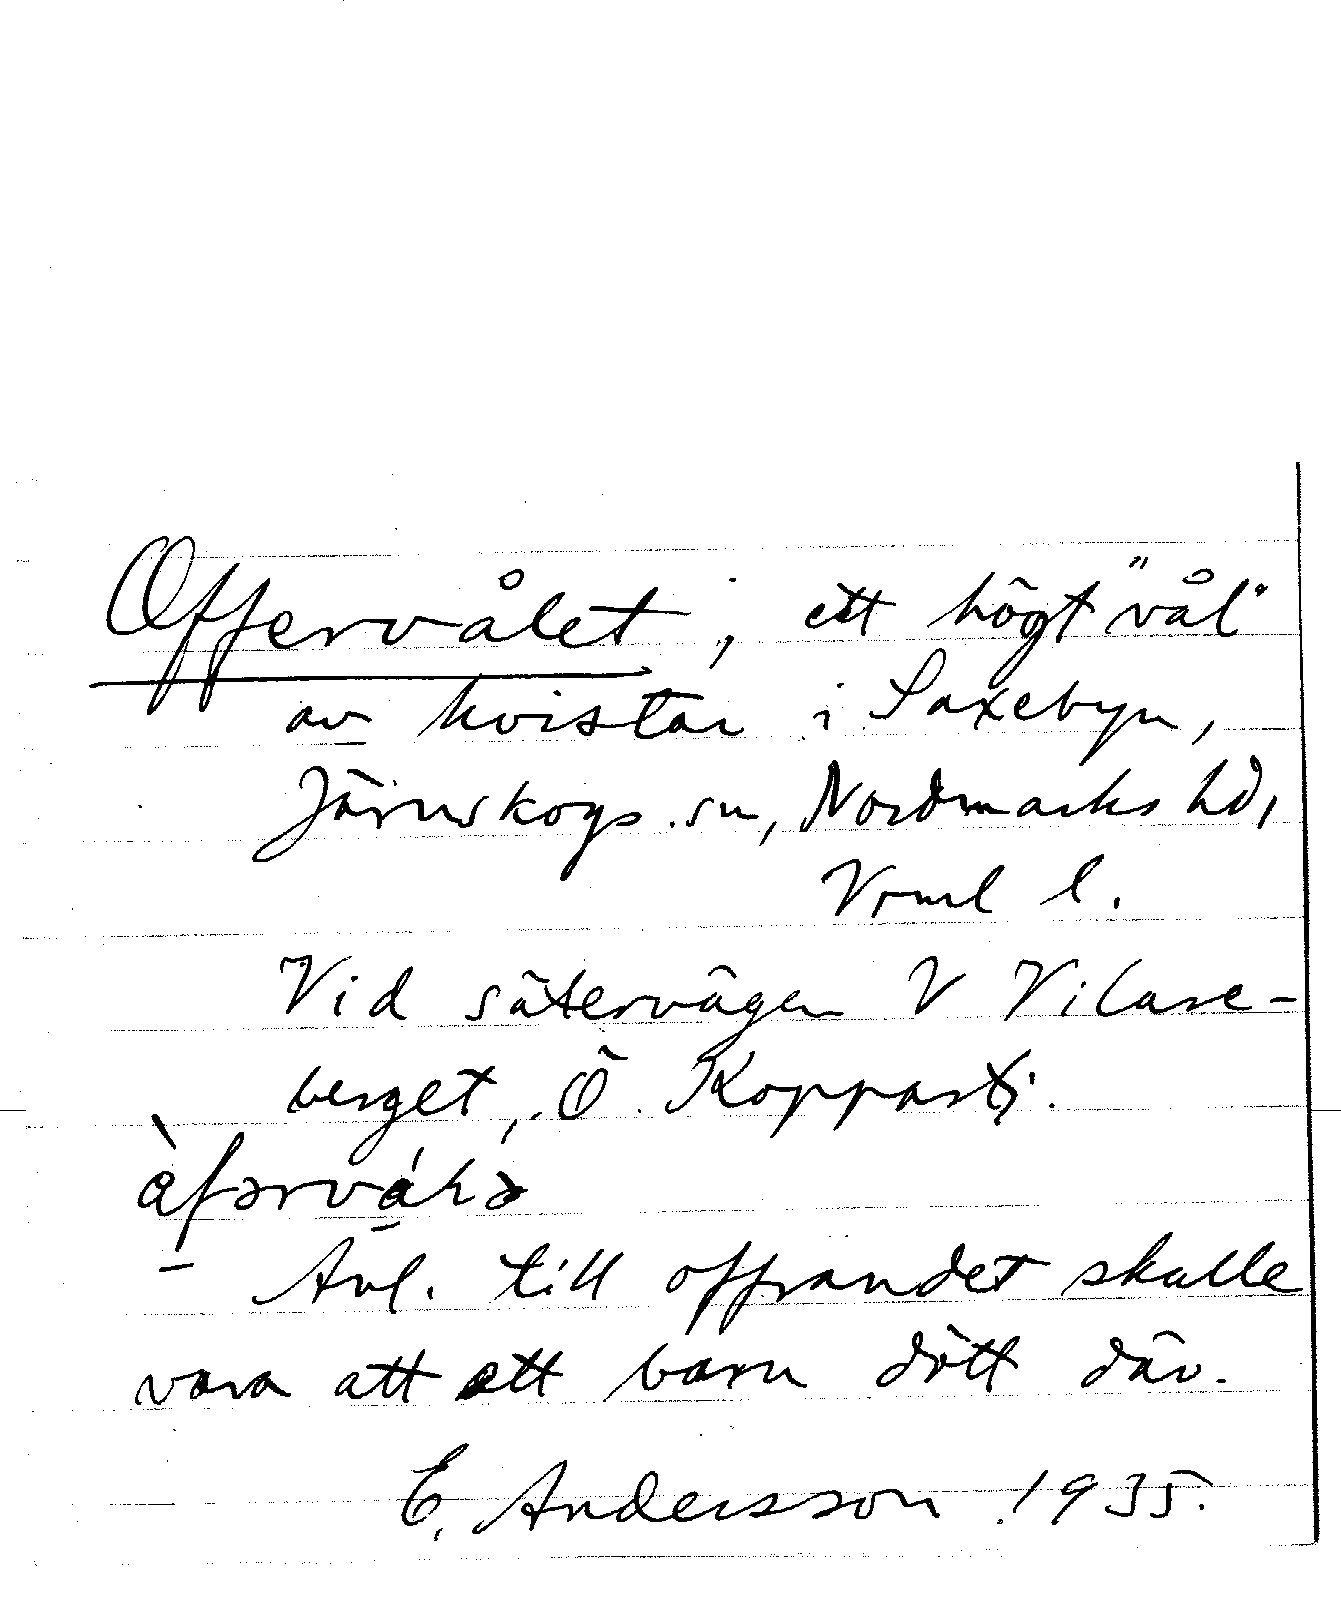 Offervålet, ett högt "vål"
av kvistar i Saxebyn,
Järnskogs sn, Nordmarks hd,
Vrml l.
Vid sätervägen V Vilare-
berget, Ö
Anl. till offrandet skulle
vara att ett barn dött där.
E. Andersson 1935.